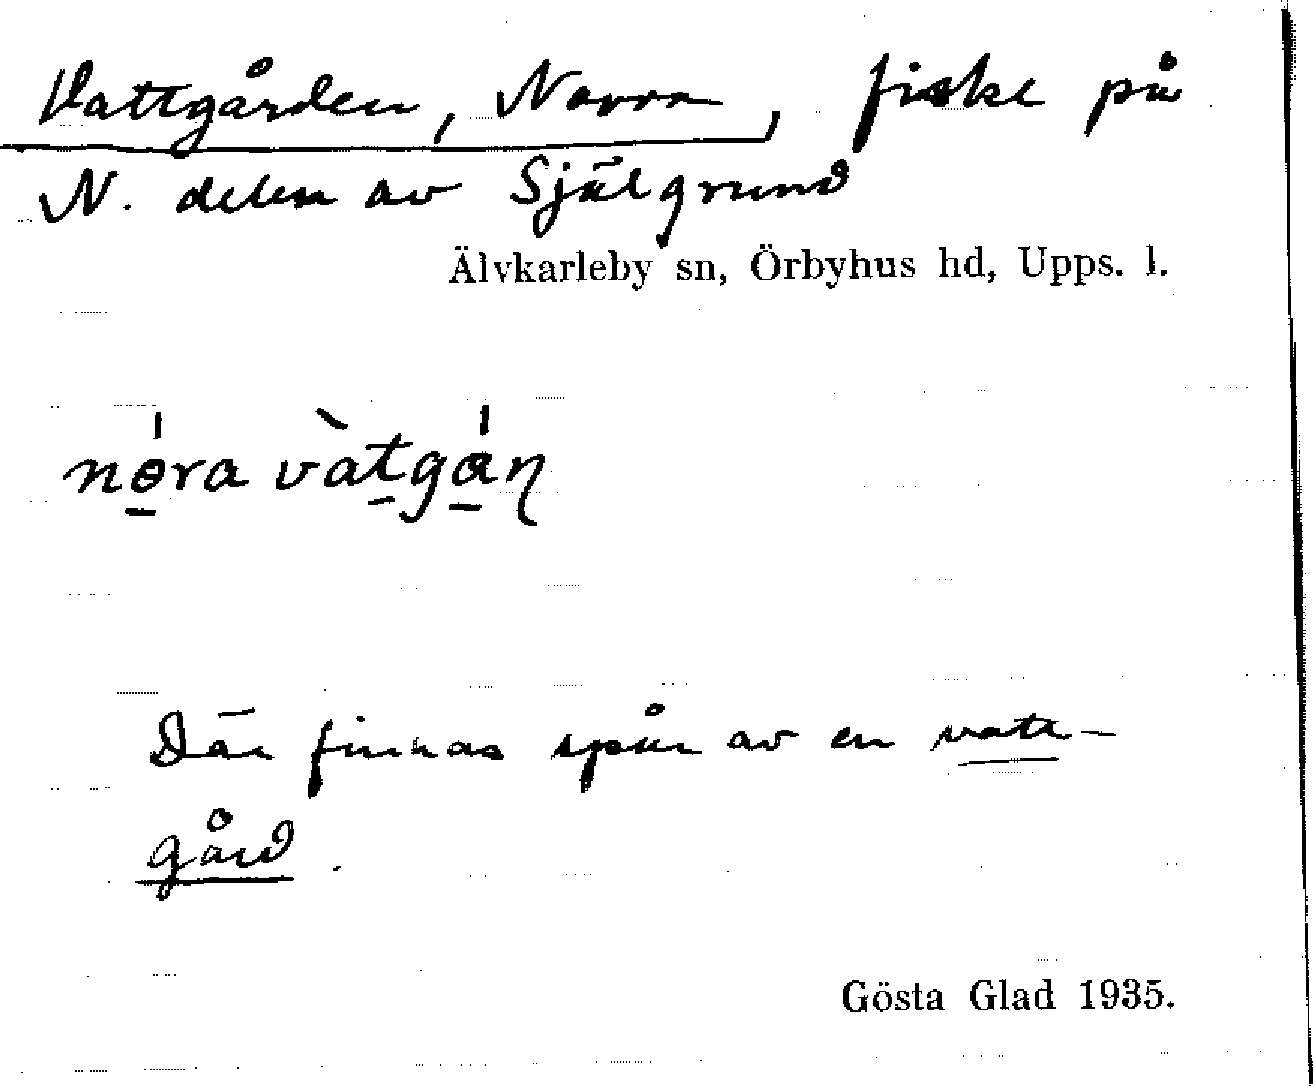 Vattgården, Norra, fiske på
N. delen av Själgrund
Älvkarleby sn, Örbyhus hd, Upps. l.
nǿ̱ra vàt̠gά̠ɳ
Där finnas spår av en vatt-
gård.
Gösta Glad 1935.